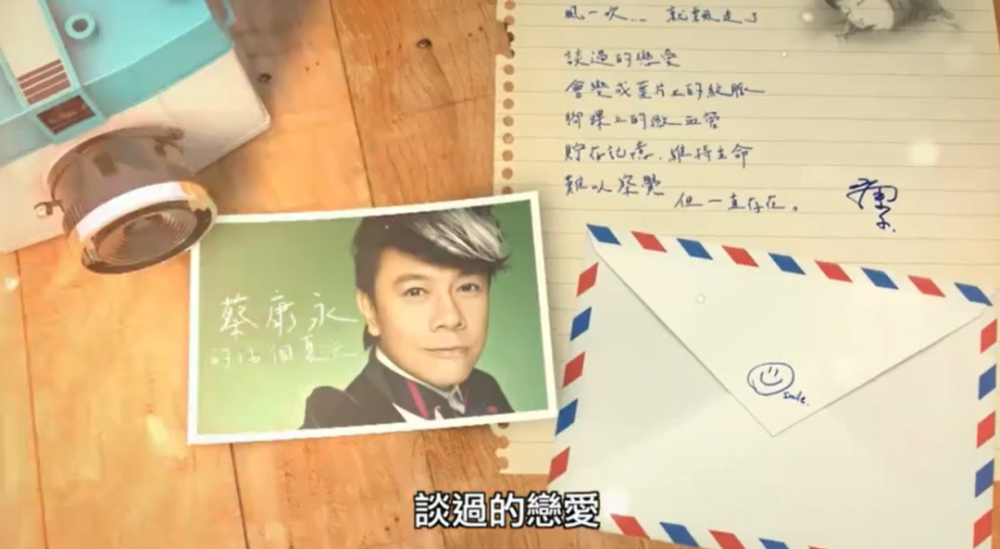 風一吹... 就飄走了
談過的戀愛
會變成葉片上的紋脈
腳踝上的微血管
貯存記憶，維持生命
難以察覺
但一直存在。
蔡康永
的16個夏天
smile.
談過的戀愛